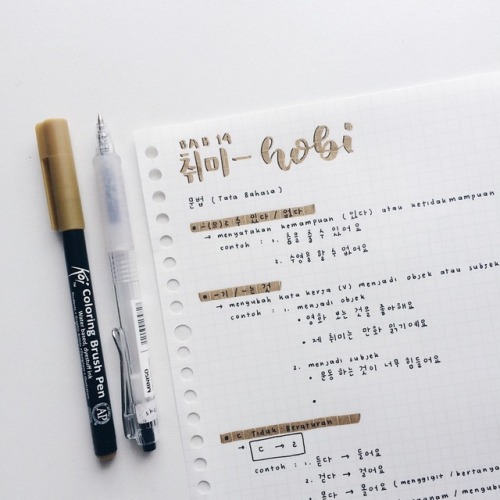 BAB 14
취미 - hobi
문법 (Tata Bahasa)
• -(으)ㄹ 수 있다 / 없다
→ menyatakan kemampuan (있다) atau ketidakmampuan
contoh : 1. 춤을 출 수 있어요
2. 수영을 할 수 없어요
• -기 / -는 것
→ mengubah kata kerja (V) menjadi objek atau subjek
contoh : 1. menjadi objek
• 영화 보는 것을 좋아해요
• 제 취미는 만화 읽기예요
2. menjadi subjek
• 운동하는 것이 너무 힘들어요
•
• ㄷ Tidak Beraturan
→ ㄷ → ㄹ
contoh : 1. 듣다 → 들어요
2. 걷다 → 걸어요
→ (menggigit / bertanya
Koi
Coloring Brush Pen
Water based, dyestuff ink
AP